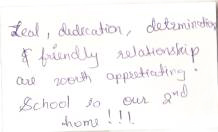 Zeal, dedication, determination
& friendly relationship
are worth appretiating.
School is our 2nd
home!!!